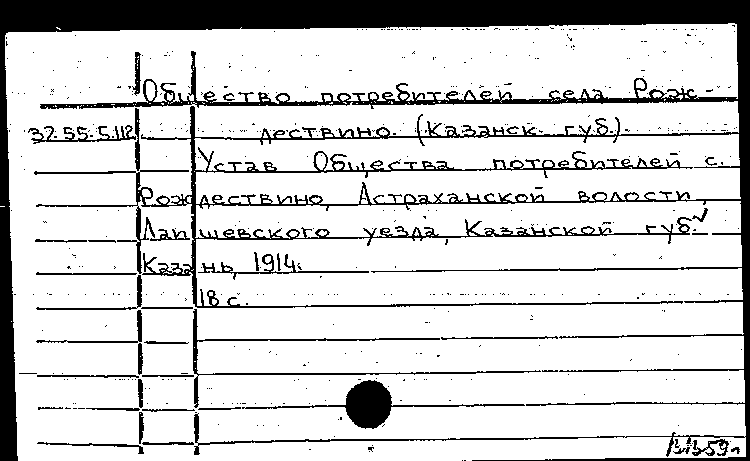 Общество потребителей села Рож-
37.55.5.112. дествино. (Казанск. губ.).
Устав Общества потребителей с.
Рождествино, Астраханской волости,
Лаишевского уезда, Казанской губ.
Казань, 1914.
18 с.